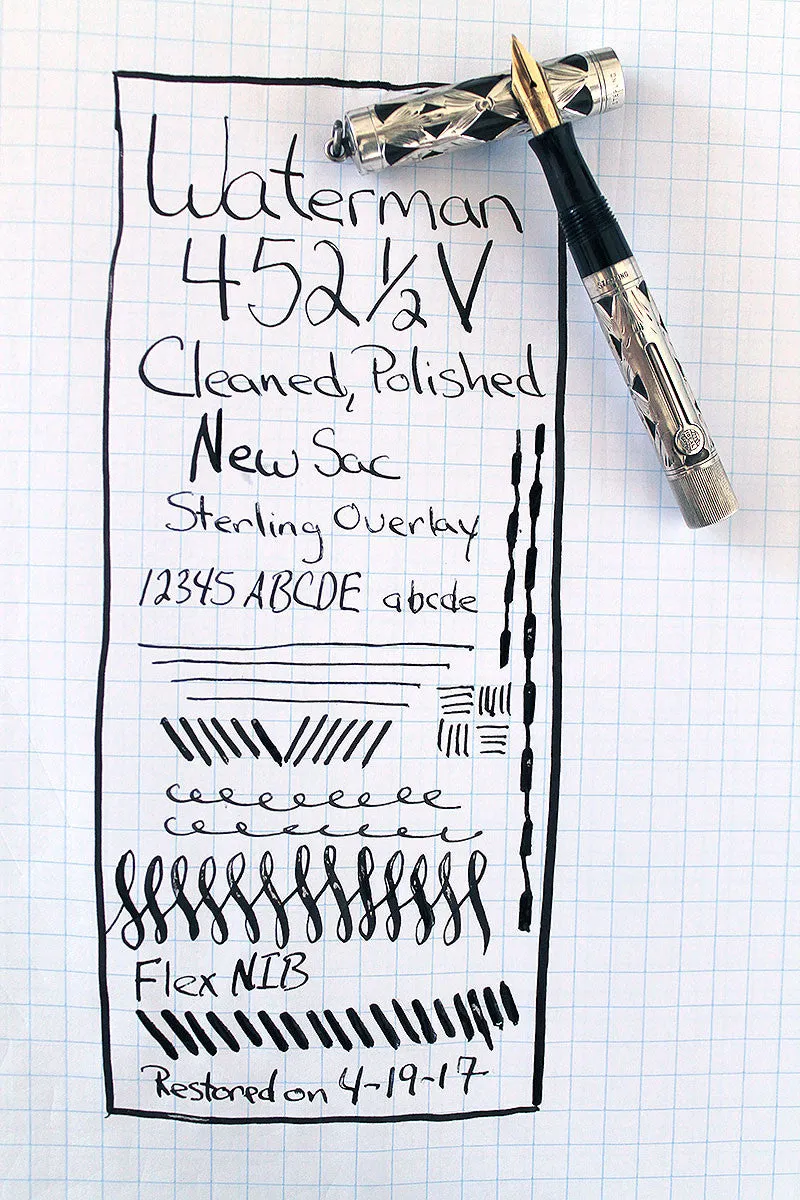 Waterman
452½ V
Cleaned, Polished
New Sac
Sterling Overlay
12345 ABCDE abcde
Flex NIB
Restored on 4-19-17